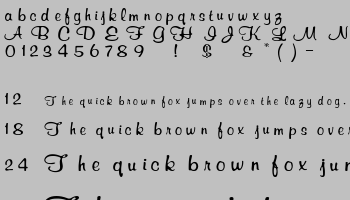 abcdefghijklmnopqrstuvwxyz
A B C D E F G H I J K L M N
0123456789 ! $ & * ( ) -
12 The quick brown fox jumps over the lazy dog.
18 The quick brown fox jumps over
24 The quick brown fox jum